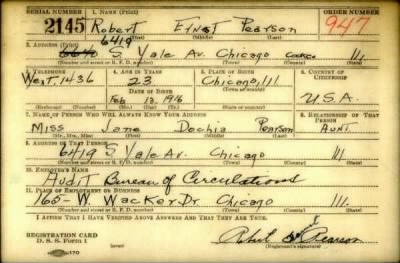 SERIAL NUMBER 1. NAME (Print) ORDER NUMBER
2145 Robert Ernst Pearson 947
6419
2. ADDRESS (Print)
6640 S. Yale Av. Chicago Cook Ill.
(Number and street or R. F. D. number) (Town) (County) (State)
3. TELEPHONE 4. AGE IN YEARS 5. PLACE OF BIRTH 6. COUNTRY OF CITIZENSHIP
Went. 1436 23 Chicago, Ill
DATE OF BIRTH
Feb 13, 1916 U.S.A.
(Exchange) (No.) (Mo.) (Day) (Yr.) (State or country)
7. NAME OF PERSON WHO WILL ALWAYS KNOW YOUR ADDRESS 8. RELATIONSHIP OF THAT PERSON
Miss Jane Pearson Aunt.
(Mr., Mrs., Miss) (First) (Middle) (Last)
9. ADDRESS OF THAT PERSON
6419 S Yale Av. Chicago Ill.
(Number and street or R. F. D. number) (Town) (County) (State)
10. EMPLOYER'S NAME
Audit Bureau of Circulations
11. PLACE OF EMPLOYMENT OR BUSINESS
165- W. Wacker Dr Chicago Ill.
(Number and street or R. F. D. number) (Town) (County) (State)
I AFFIRM THAT I HAVE VERIFIED ABOVE ANSWERS AND THAT THEY ARE TRUE.
REGISTRATION CARD
D. S. S. Form 1 (over) Robert E Pearson
(Registrant's signature)